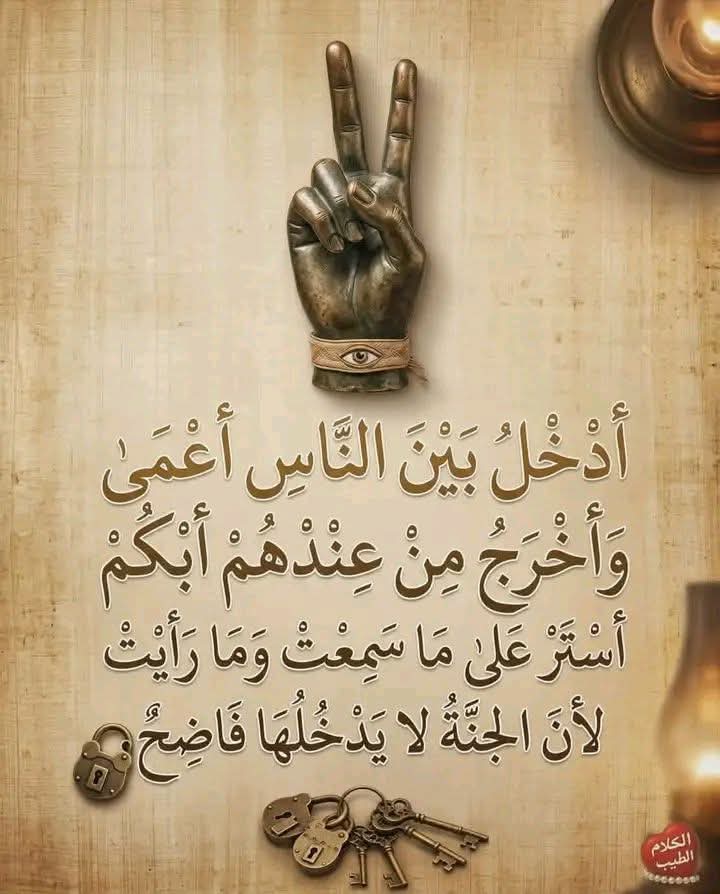 أدْخْلُ بَيْنَ النَّاسِ أعْمَىٰ
وَأخْرَجُ مِنْ عِنْدْهُمْ أبْكُمْ
أسْتَرْ عَلىٰ مَا سَمِعْتْ وَمَا رَأيْتْ
لأنَ الجنَّةُ لا يَدْخُلُهَا فَاضِحٌ
الكلام
الطيب